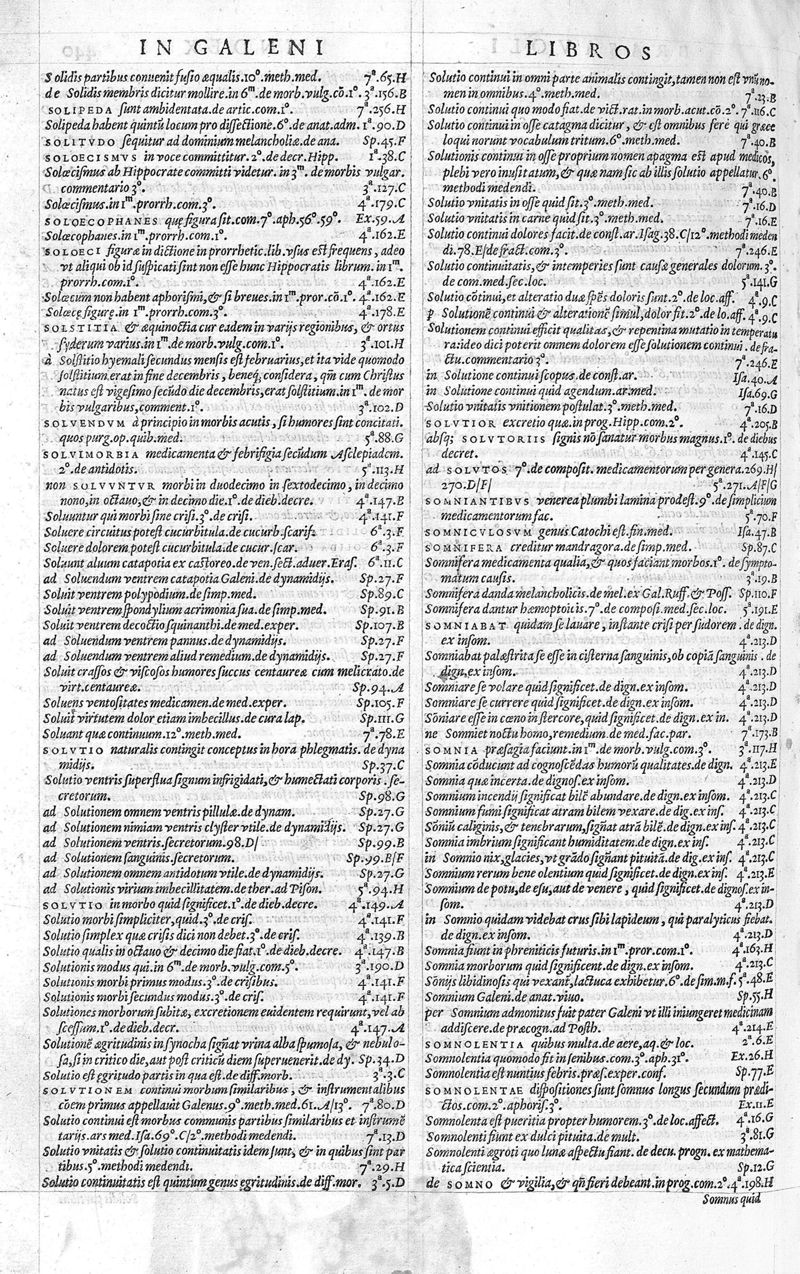 IN GALENI
Solidis partibus conuenit fusio æqualis.10°.meth.med. 7ª.65.H
de Solidis membris dicitur mollire.in 6ᵐ.de morb.vulg.cō.1°. 3ª.156.B
SOLIPEDA sunt ambidentata.de artic.com.1°. 7ª.256.H
Solipeda habent quintū locum pro dissectione.6°.de anat.adm. 1ª.90.D
SOLITVDO sequitur ad dominium melancholiæ.de ana. Sp.45.F
SOLOECISMVS in voce committitur.2°.de decr.Hipp. 1ª.38.C
Solœcismus ab Hippocrate committi videtur. in 3ᵐ. de morbis vulgar.
commentario 3°. 3ª.127.C
Solœcismus.in 1ᵐ.prorrh.com.3°. 4ª.179.C
SOLOECOPHANES quę figura sit.com.7°.aph.56°.59°. Ex.59.A
Solœcophanes.in 1ᵐ.prorrh.com.1°. 4ª.162.E
SOLOECI figuræ in dictione in prorrhetic.lib.vsus est frequens, adeo
vt aliqui ob id suspicati sint non esse hunc Hippocratis librum. in 1ᵐ.
prorrh.com.1°. 4ª.162.E
Solœcum non habent aphorismi, & si breues.in 1ᵐ.pror.cō.1°. 4ª.162.E
Solœcę figurę.in 1ᵐ.prorrh.com.3°. 4ª.178.E
SOLSTITIA & æquinoctia cur eadem in varijs regionibus, & ortus
syderum varius.in 1ᵐ.de morb.vulg.com.1°. 3ª.101.H
à Solstitio hyemali secundus mensis est februarius, et ita vide quomodo
solstitium.erat in fine decembris, beneq́, considera, qm̄ cum Christus
natus est vigesimo secūdo die decembris,erat solstitium.in 1ᵐ. de mor
bis vulgaribus,comment.1°. 3ª.102.D
SOLVENDVM à principio in morbis acutis, si humores sint concitati.
quos purg.op.quib.med. 5ª.88.G
SOLVIMORBIA medicamenta & febrifigia secūdum Asclepiadem.
2°.de antidotis. 5ª.113.H
non SOLVVNTVR morbi in duodecimo in sextodecimo, in decimo
nono,in octauo,& in decimo die.1°.de dieb.decre. 4ª.147.B
Soluuntur qui morbi sine crisi.3°.de crisi. 4ª.141.F
Soluere circuitus potest cucurbitula.de cucurb.scarif. 6ª.3.F
Soluere dolorem potest cucurbitula.de cucur.scar. 6ª.3.F
Soluunt aluum catapotia ex castoreo.de ven.sect.aduer.Eras. 6ª.11.C
ad Soluendum ventrem catapotia Galeni.de dynamidijs. Sp.27.F
Soluit ventrem polypodium.de simp.med. Sp.89.C
Soluit ventrem spondylium acrimonia sua.de simp.med. Sp.91.B
Soluit ventrem decoctio squinanthi.de med.exper. Sp.107.B
ad Soluendum ventrem pannus.de dynamidijs. Sp.27.F
ad Soluendum ventrem aliud remedium.de dynamidijs. Sp.27.F
Soluit crassos & viscosos humores succus centaureæ cum melicrato.de
virt.centaureæ. Sp.94.A
Soluens ventositates medicamen.de med.exper. Sp.105.F
Soluit virtutem dolor etiam imbecillus.de cura lap. Sp.111.G
Soluunt quæ continuum.12°.meth.med. 7ª.78.E
SOLVTIO naturalis contingit conceptus in hora phlegmatis. de dyna
midijs. Sp.37.C
Solutio ventris superflua signum infrigidati,& humectati corporis .se-
cretorum. Sp.98.G
ad Solutionem omnem ventris pillulæ.de dynam. Sp.27.G
ad Solutionem nimiam ventris clyster vtile.de dynamidijs. Sp.27.G
ad Solutionem ventris.secretorum.98.D/ Sp.99.B
ad Solutionem sanguinis.secretorum. Sp.99.B/F
ad Solutionem omnem antidotum vtile.de dynamidijs. Sp.27.G
ad Solutionis virium imbecillitatem.de ther.ad Pison. 5ª.94.H
SOLVTIO in morbo quid significet.1°.de dieb.decre. 4ª.149.A
Solutio morbi simpliciter,quid.3°.de cris. 4ª.141.F
Solutio simplex quæ crisis dici non debet.3°.de cris. 4ª.139.B
Solutio qualis in octauo & decimo die fiat.1°.de dieb.decre. 4ª.147.B
Solutionis modus qui.in 6ᵐ.de morb.vulg.com.5°. 3ª.190.D
Solutionis morbi primus modus.3°.de crisibus. 4ª.141.F
Solutionis morbi secundus modus.3°.de cris. 4ª.141.F
Solutiones morborum subitæ, excretionem euidentem requirunt, vel ab
scessum.1°.de dieb.decr. 4ª.147.A
Solutionē ægritudinis in synocha sign̄at vrina alba spumosa, & nebulo-
sa, si in critico die, aut post criticū diem superuenerit.de dy. Sp.34.D
Solutio est egritudo partis in qua est.de diff.morb. 3ª.3.C
SOLVTIONEM continui morbum similaribus, & instrumentalibus
cōem primus appellauit Galenus.9°.meth.med.61.A/13°. 7ª.80.D
Solutio continui est morbus communis partibus similaribus et instrumē
tarijs.ars med.Isa.69°.C/2°.methodi medendi. 7ª.13.D
Solutio vnitatis & solutio continuitatis idem sunt, & in quibus sint par
tibus.5°.methodi medendi. 7ª.29.H
Solutio continuitatis est quintum genus egritudinis.de diff.mor. 3ª.5.D
LIBROS
Solutio continui in omni parte animalis contingit,tamen non est vnū no-
men in omnibus.4°.meth.med. 7ª.23.B
Solutio continui quo modo fiat.de vict.rat.in morb.acut.cō.2°. 7ª.116.C
Solutio continui in osse catagma dicitur, & est omnibus ferè qui græce
loqui norunt vocabulum tritum.6°.meth.med. 7ª.40.B
Solutionis continui in osse proprium nomen apagma est apud medicos,
plebi vero inusitatum, & quæ nam sic ab illis solutio appellatur.6°.
methodi medendi. 7ª.40.B
Solutio vnitatis in osse quid sit.3°.meth.med. 7ª.16.D
Solutio vnitatis in carne quid sit.3°.meth.med. 7ª.16.E
Solutio continui dolores facit.de const.ar.Isag.38.C/12°.methodi meden
di.78.E/de fract.com.3°. 7ª.246.E
Solutio continuitatis,& intemperies sunt causæ generales dolorum.3°.
de com.med.sec.loc. 5ª.141.G
Solutio cōtinui,et alteratio duæ spēs doloris sunt.2°.de loc.aff. 4ª.9.C
p Solutionē continui & alterationē simul,dolor fit.2°.de lo.aff. 4ª.9.C
Solutionem continui efficit qualitas,& repentina mutatio in temperatu
ra:ideo dici poterit omnem dolorem esse solutionem continui .de fra-
ctu.commentario 3°. 7ª.246.E
in Solutione continui scopus.de const.ar. Isa.40.A
in Solutione continui quid agendum.ar.med. Isa.69.G
Solutio vnitatis vnitionem postulat.3°.meth.med. 7ª.16.D
SOLVTIOR excretio quæ.in prog.Hipp.com.2°. 4ª.205.B
absq; SOLVTORIIS signis nō sanatur morbus magnus.1°. de diebus
decret. 4ª.145.C
ad SOLVTOS 7°.de composit. medicamentorum per genera.269.H/
270.D/F/ 5ª.271.A/F/G
SOMNIANTIBVS venerea plumbi lamina prodest.9°.de simplicium
medicamentorum fac. 5ª.70.F
SOMNICVLOSVM genus Catochi est.fin.med. Isa.47.B
SOMNIFERA creditur mandragora.de simp.med. Sp.87.C
Somnifera medicamenta qualia,& quos faciant morbos.1°. de sympto-
matum causis. 3ª.19.B
Somnifera danda melancholicis.de mel.ex Gal.Ruff.& Poss. Sp.110.F
Somnifera dantur hæmoptoicis.7°.de composi.med.sec.loc. 5ª.191.E
SOMNIABAT quidam se lauare, instante crisi per sudorem. de dign.
ex insom. 4ª.213.D
Somniabat palæstrita se esse in cisterna sanguinis,ob copiā sanguinis .de
dign.ex insom. 4ª.213.D
Somniare se volare quid significet.de dign.ex insom. 4ª.213.D
Somniare se currere quid significet.de dign.ex insom. 4ª.213.D
Sōniare esse in cœno in stercore,quid significet.de dign.ex in. 4ª.213.D
ne Somniet noctu homo,remedium.de med.fac.par. 7ª.173.B
SOMNIA præsagia faciunt.in 1ᵐ.de morb.vulg.com.3°. 3ª.117.H
Somnia cōducunt ad cognoscēdas humorū qualitates.de dign. 4ª.213.E
Somnia quæ incerta.de dignos.ex insom. 4ª.213.D
Somnium incendij significat bilē abundare.de dign.ex insom. 4ª.213.C
Somnium fumi significat atram bilem vexare.de dig.ex ins. 4ª.213.C
Sōniū caliginis,& tenebrarum,sign̄at atrā bilē.de dign.ex ins. 4ª.213.C
Somnia imbrium significant humiditatem.de dign.ex ins. 4ª.213.C
in Somnio nix,glacies,vt grādo sign̄ant pituitā.de dig.ex ins. 4ª.213.C
Somnium rerum bene olentium quid significet.de dign.ex ins. 4ª.213.D
Somnium de potu,de esu,aut de venere , quid significet.de dignos.ex in-
som. 4ª.213.D
in Somnio quidam videbat crus sibi lapideum, qui paralyticus fiebat.
de dign.ex insom. 4ª.213.D
Somnia fiunt in phreniticis futuris.in 1ᵐ.pror.com.1°. 4ª.163.H
Somnia morborum quid significent.de dign.ex insom. 4ª.213.C
Sōnijs libidinosis qui vexant,lactuca exhibetur.6°.de sim.m.f. 5ª.48.E
Somnium Galeni.de anat.viuo. Sp.55.H
per Somnium admonitus fuit pater Galeni vt illi iniungeret medicinam
addiscere.de præcogn.ad Posth. 4ª.214.E
SOMNOLENTIA quibus multa.de aere,aq.& loc. 2ª.6.E
Somnolentia quomodo fit in senibus.com.3°.aph.31°. Ex.26.H
Somnolentia est nuntius febris.præs.exper.conf. Sp.77.E
SOMNOLENTAE dispositiones sunt somnus longus secundum prædi-
ctos.com.2°.aphoris.3°. Ex.11.E
Somnolenta est pueritia propter humorem.3°.de loc.affect. 4ª.16.G
Somnolenti fiunt ex dulci pituita.de mult. 3ª.81.G
Somnolenti ægroti quo lunæ aspectu fiant. de decu. progn. ex mathema-
tica scientia. Sp.12.G
de SOMNO & vigilia,& qn̄ fieri debeant.in prog.com.2°. 4ª.198.H
Somnus quid